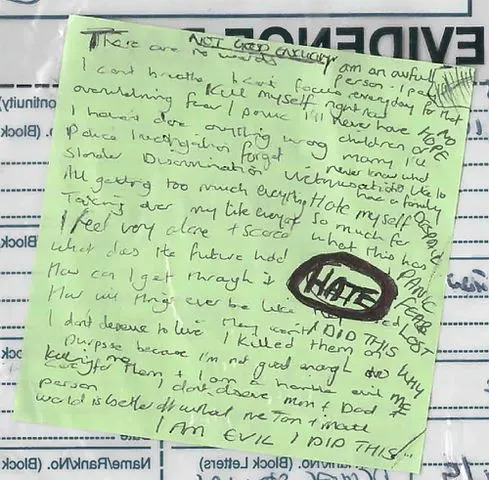 NOT GOOD ENOUGH
There are no words
I am an awful person I pay
I can't breathe I can't focus everyday for that
Kill myself right now
overwhelming fear / panic I'll never have NO
HOPE
I haven't done anything wrong children or marry I'll
Police investigation forget never know what
Slander Discrimination like to have a family
All getting too much everything Hate myself
DESPAIR
Taking over my life everyday so much for what this has
PANIC
I feel very alone + scared
FEAR
What does the future hold
LOST
HATE
How can I get through it
How will things ever be like
I DID THIS
WHY ME
I don't deserve to live I killed them on
purpose because I'm not good enough to
care for them + I am a horrible evil
person I don't deserve mum + Dad +
world is better off without me
I AM EVIL I DID THIS
EVIDENCE
(Block
(Block
Name/Rank/No. (Block Letters)
Rank/No. (Block